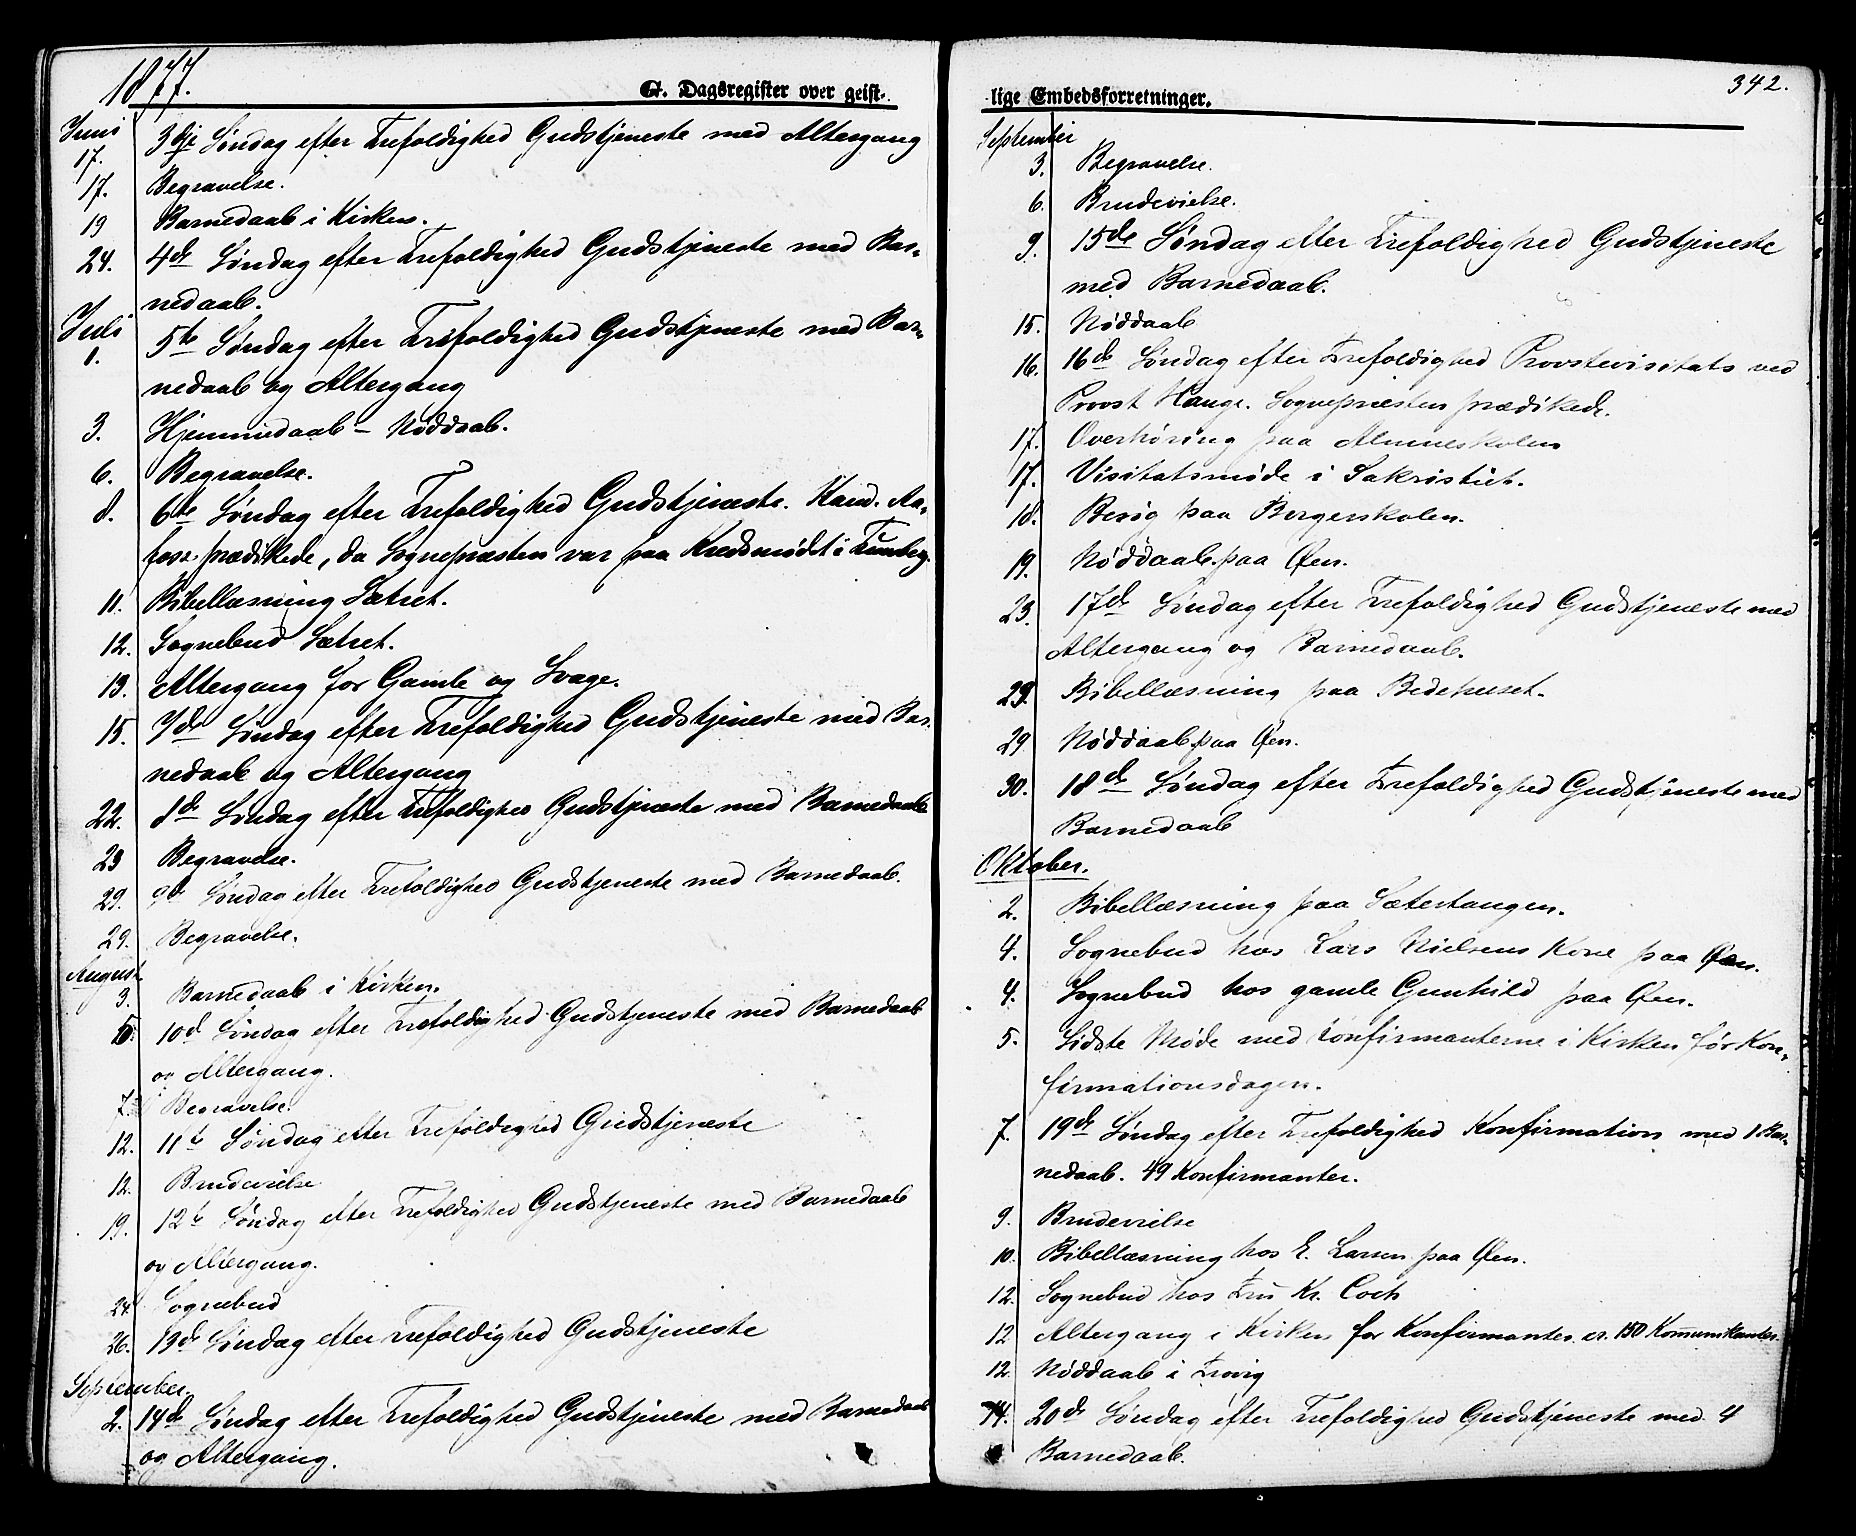 1877.
G. Dagsregister over geist-
Juni
17. 3die Søndag efter Trefoldighed Gudstjeneste med Altergang
17. Begravelse.
19 Barnedaab i Kirken.
24. 4de Søndag efter Trefoldighed Gudstjeneste med Bar-
nedaab.
Juli
1. 5te Søndag efter Trefoldighed Gudstjeneste med Bar-
nedaab og Altergang
3. Hjemmedaab - Nøddaab.
6. Begravelse.
8. 6te Søndag efter Trefoldighed Gudstjeneste. Kand. Aa-
prædikede, da Sognepræsten var paa Kredsmødet i
11. Bibellæsning Sætret.
12. Sognebud Sætret.
13. Altergang for Gamle og Svage.
15. 7de Søndag efter Trefoldighed Gudstjeneste med Bar-
nedaab og Altergang
22. 8de Søndag efter Trefoldighed Gudstjeneste med Barnedaab
23 Begravelse.
29. 9de Søndag efter Trefoldighed Gudstjeneste med Barnedaab.
29. Begravelse.
August
3. Barnedaab i Kirken.
5. 10d Søndag efter Trefoldighed Gudstjeneste med Barnedaab
og Altergang.
7. Begravelse.
12. 11te Søndag efter Trefoldighed Gudstjeneste
12. Brudevielse
19. 12te Søndag efter Trefoldighed Gudstjeneste med Barnedaab
og Altergang.
24. Sognebud
26. 13de Søndag efter Trefoldighed Gudstjeneste
September.
2. 14de Søndag efter Trefoldighed Gudstjeneste med Barnedaab
og Altergang.
lige Embedsforretninger.
342.
September
3. Begravelse.
6. Brudevielse.
9. 15de Søndag efter Trefoldighed Gudstjeneste
med Barnedaab.
15. Nøddaab
16. 16de Søndag efter Trefoldighed Provstevisitats ved
Provst Hauge. Sognepræsten prædikede.
17. Overhøring paa Almueskolen
17. Visitatsmøde i Sakristiet.
18. Besøg paa Bergerskolen.
19. Nøddaab paa Øen.
23. 17de Søndag efter Trefoldighed Gudstjeneste med
Altergang og Barnedaab.
23. Bibellæsning paa Bedehuset.
29 Nøddaab paa Øen.
30. 18de Søndag efter Trefoldighed Gudstjeneste med
Barnedaab
Oktober.
2. Bibellæsning paa Sætertangen.
4. Sognebud hos Lars Nielsens Kone paa Øen.
4. Sognebud hos gamle Gunhild paa Øen.
5. Sidste Møde med Konfirmanterne i Kirken før Kon-
firmationsdagen.
7. 19de Søndag efter Trefoldighed Konfirmation med 1 Bar-
nedaab. 49 Konfirmanter.
9. Brudevielse
10. Bibellæsning hos E. Larsen paa Øen.
12. Sognebud hos Fru Kr. Coch
12 Altergang i Kirken for Konfirmanter. ca. 150 Kommunikanter.
12. Nøddaab i Trovig
14. 20de Søndag efter Trefoldighed Gudstjeneste med 4
Barnedaab.